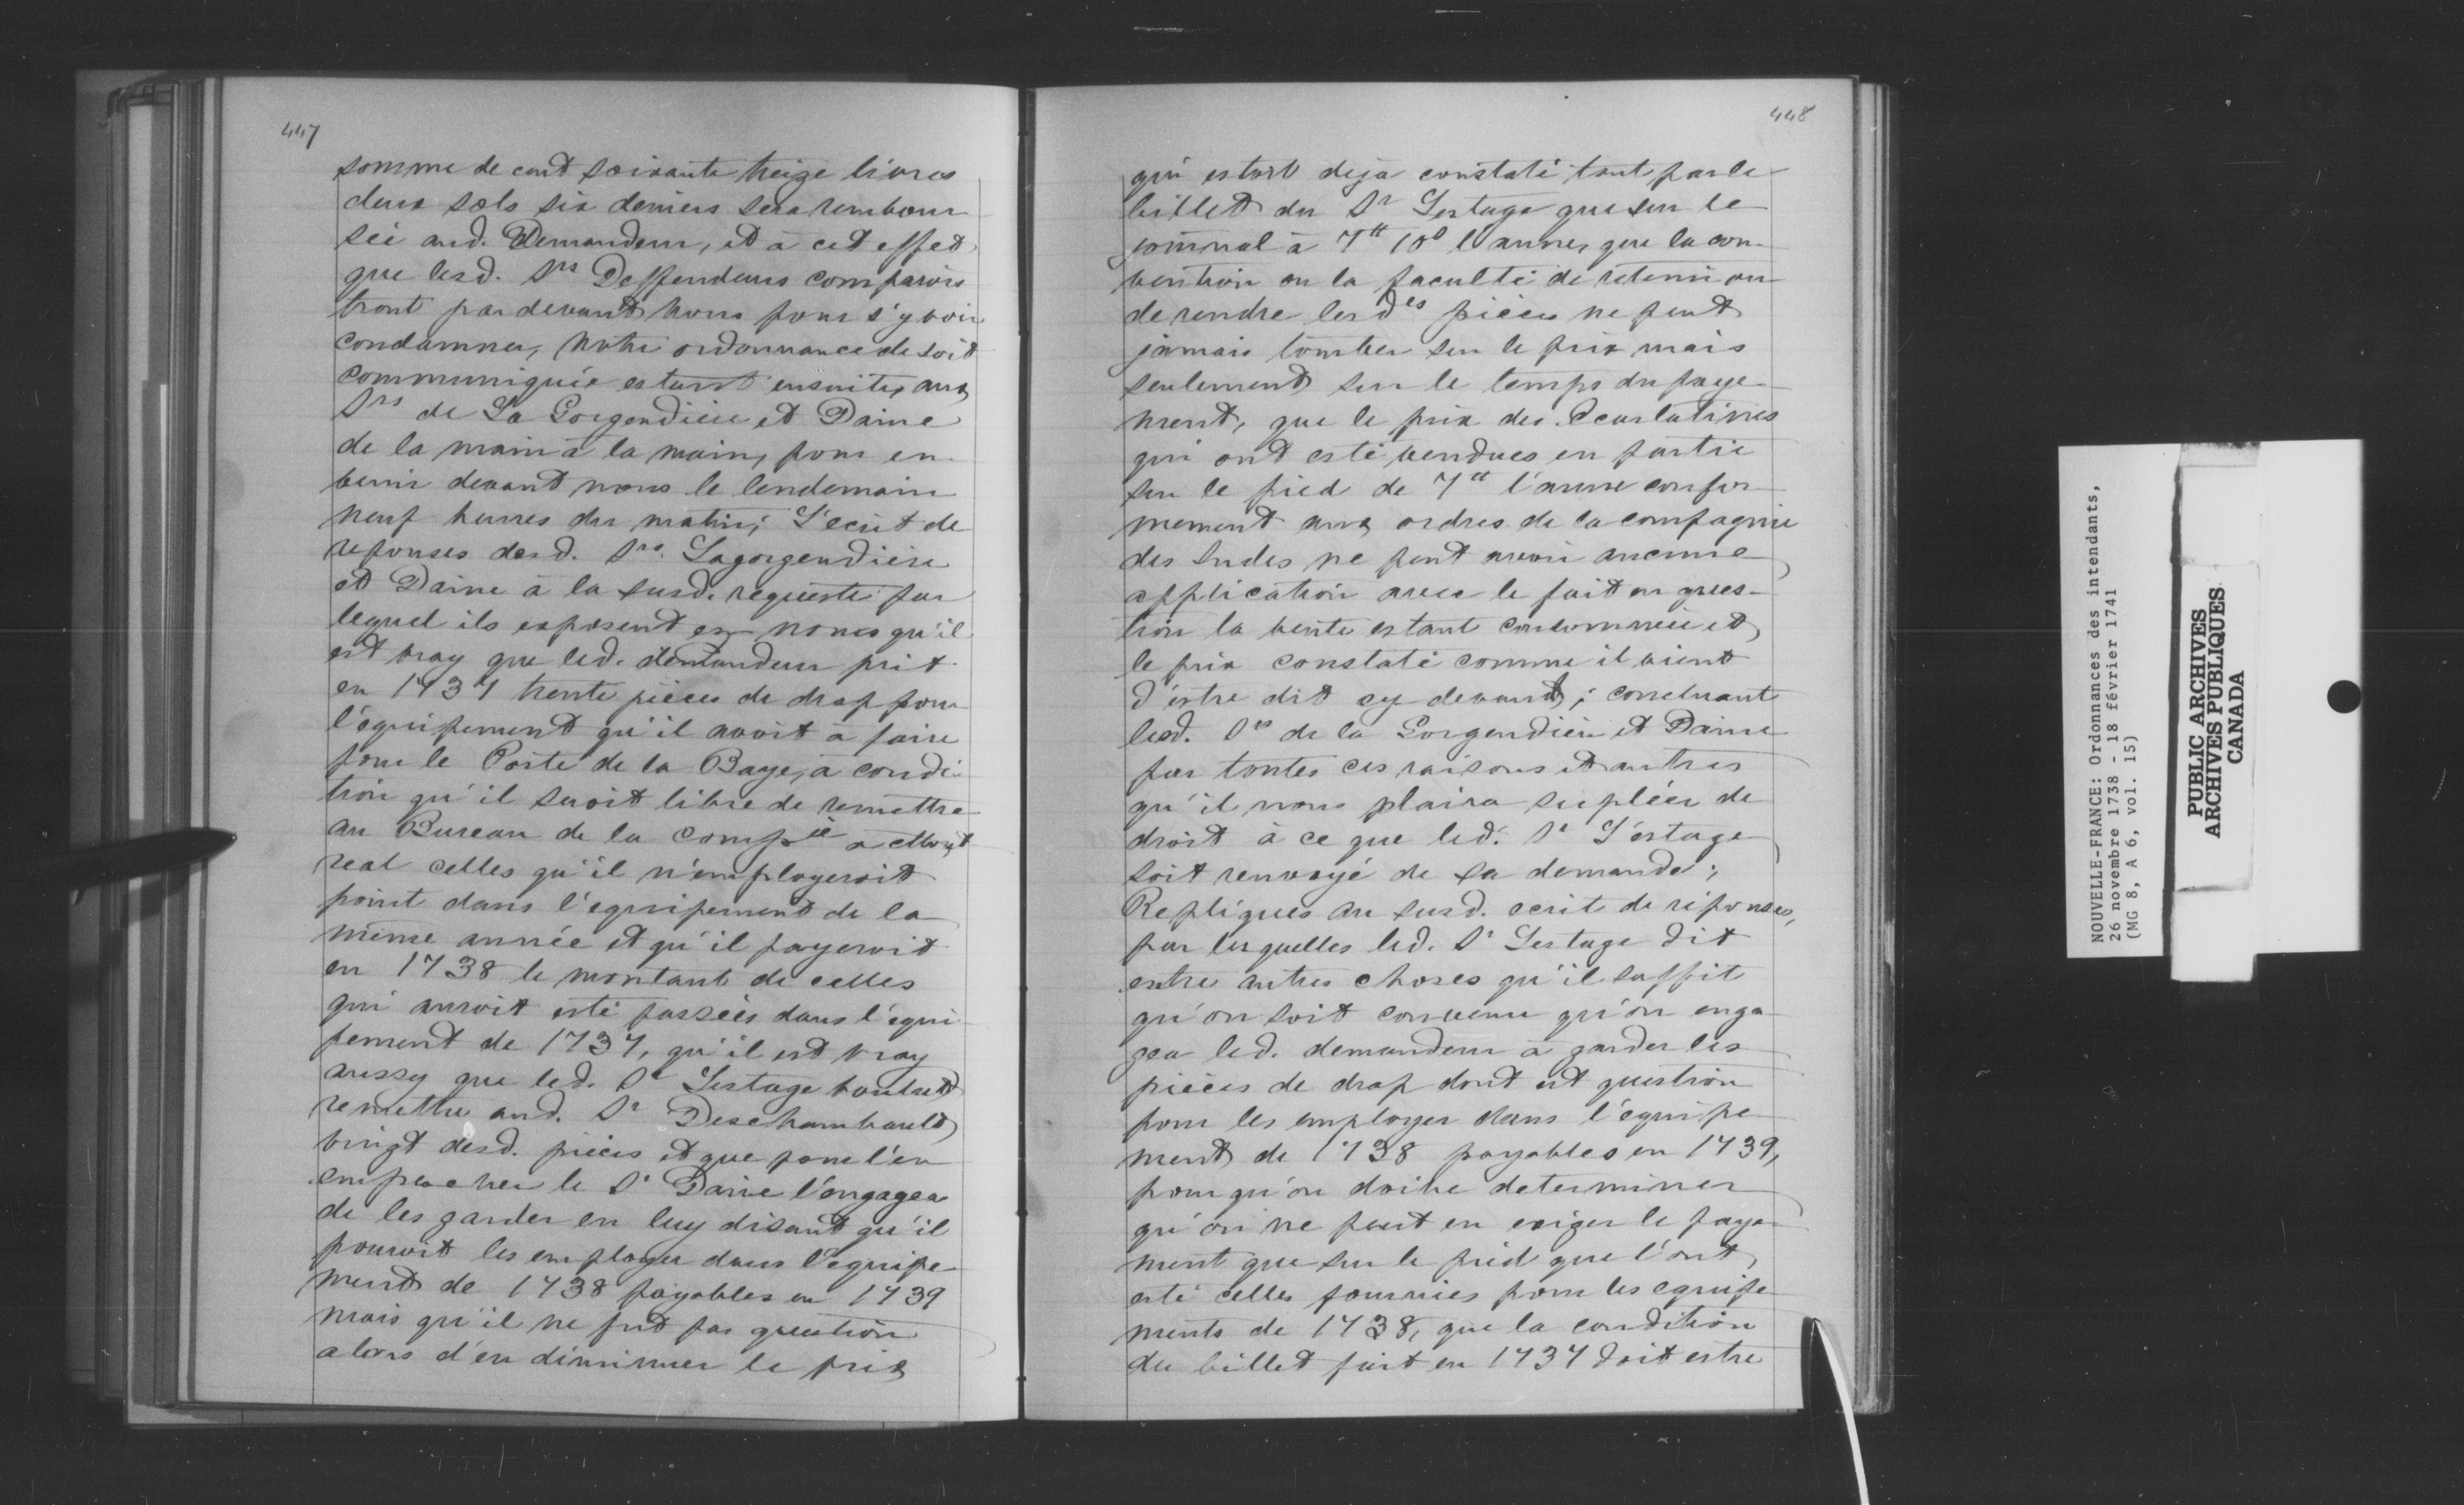 447
somme de cent soixante treize livres
deux sols six deniers sera rembour
séé aud. Demandeur, et à cet effet
que lesd. Srs Deffendeurs comparois
tront pardevant nous pour s'y voir
condamner, Notre ordonnance de soit
communiquée estant ensuite, aux
Srs de La Gorgendière et Daine
de la main à la main, pour en
venir devant nous le lendemain
neuf heures du matin; L'ecrit de
reponses desd. Srs. Lagorgendière
et Daine à la susd. requeste par
lequel ils exposent que nous qu'il
est vray que led. demandeur prit
en 1737 trente pièces de drap pour
l'équipement qu'il avoit à faire
pour le Poste de la Baye, à condi-
tion qu'il seroit libre de remettre
au Bureau de la Compie à Mont
real celles qu'il n'employeroit
point dans l'equipement de la
même année et qu'il payeroit
en 1738 le montant de celles
qui auroit esté passées dans l'équi
pement de 1737, qu'il est vray
aussy que led. Sr Lestage voulut
remettre aud. Sr Deschambault
vingt desd. pièces et que pour l'en
empescher le Sr Daine l'engagea
de les garder en luy disant qu'il
pouroit les employer dans l'équipe-
ment de 1738 payables en 1739
mais qu'il ne fut pas question
alors d'en diminuer le prix
448
qui estoit deja constaté tant par le
billet du Sr Lestage que sur le
journal à 7tt 10s l'aune, que la con-
vention ou la faculté de retenir ou
de rendre lesdes pièces ne peut
jamais tomber sur le prix mais
seulement sur le temps du paye-
ment, que le prix des Ecarlatines
qui ont esté vendues en partie
sur le pied de 7tt l'aune confor-
mement aux ordres de la compagnie
des Indes ne peut avoir aucune
application avec le fait en ques-
tion la vente estant consommée et
le prix constaté comme il vient
d'estre dit cy devant; concluant
lesd. Srs de la Gorgendière et Daine
par toutes ces raisons et autres
qu'il nous plaira supléer de
droit à ce que led. Sr L'estage
soit renvoyé de sa demande;
Repliques au susd. ecrit de réponses,
par lesquelles led. Sr Lestage dit
entre autres choses qu'il suffit
qu'on soit convenu qu'on enga-
gea led. demandeur à garder les
pièces de drap dont est question
pour les employer dans l'équipe
ment de 1738 payables en 1739,
pour qu'on doive determiner
qu'on ne peut en exiger le paye-
ment que sur le pied que l'ont
esté celles fournies pour les equipe
ments de 1738, que la condition
du billet fait en 1737 doit estre
NOUVELLE-FRANCE: Ordonnances des intendants,
26 novembre 1738 - 18 février 1741
(MG 8, A 6, vol. 15)
PUBLIC ARCHIVES
ARCHIVES PUBLIQUES
CANADA